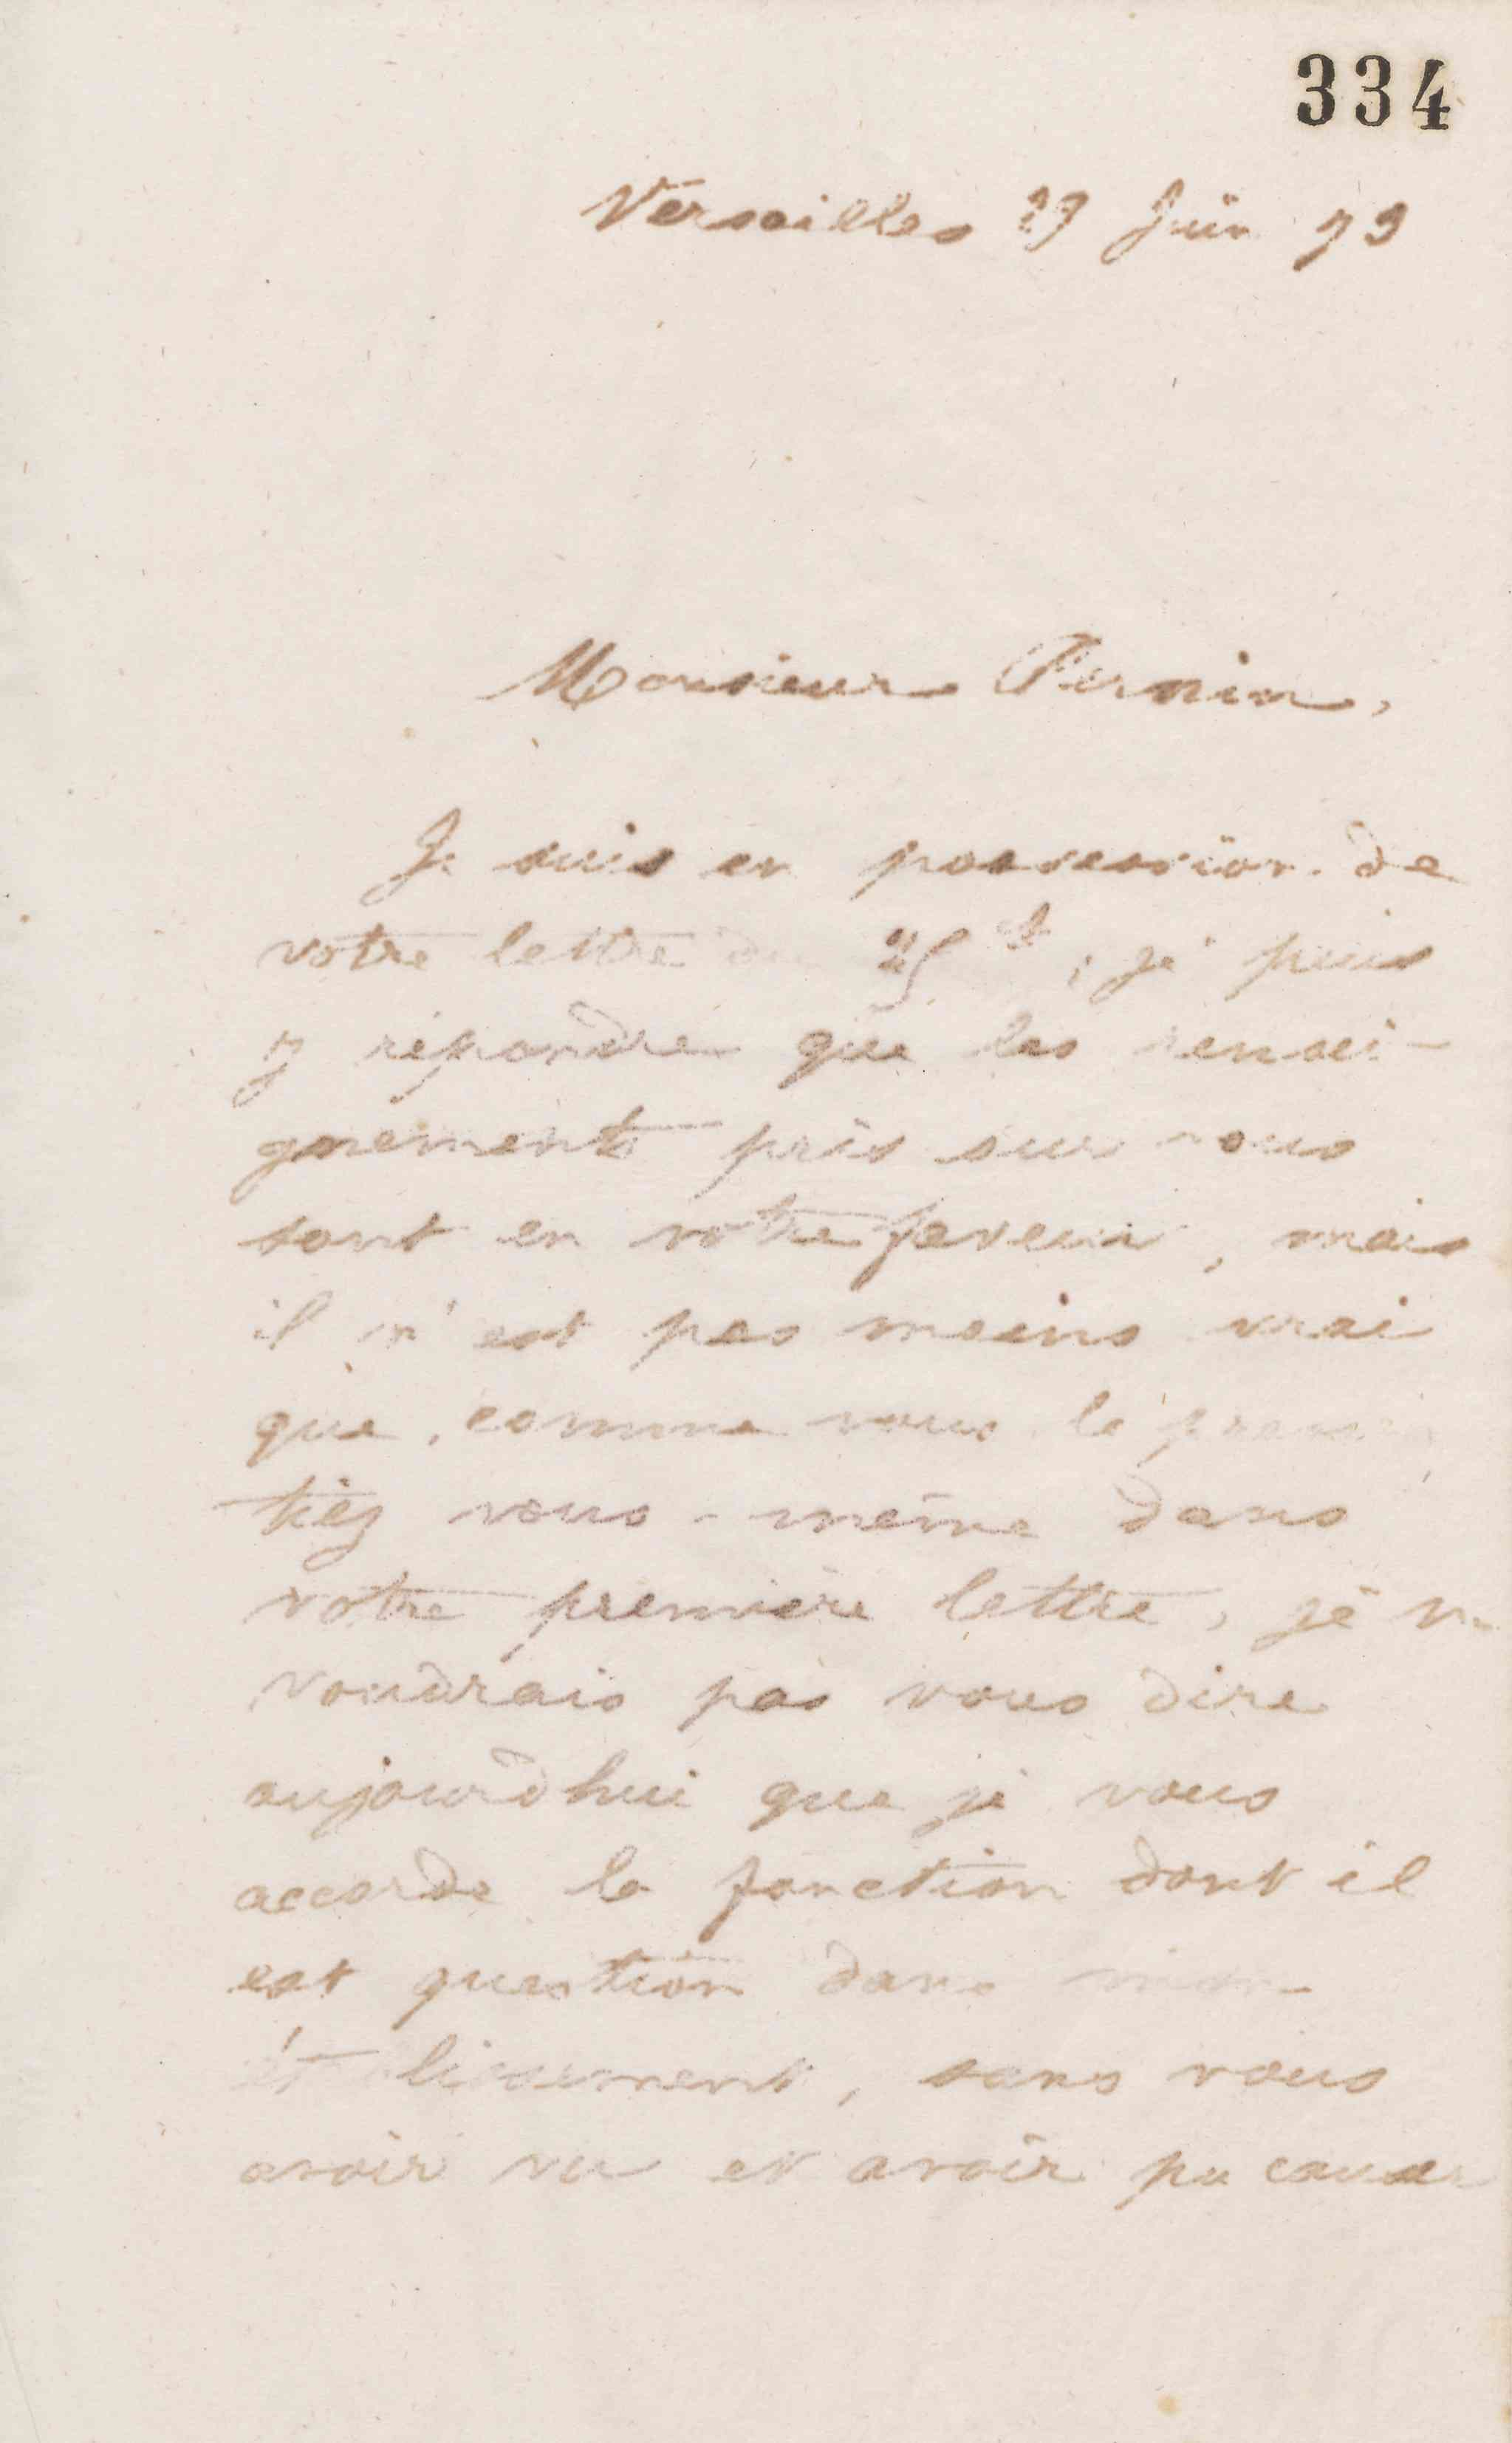 334
Versailles 27 Juin 79
Monsieur Pernin,
Je suis en possession de
votre lettre du 25 ct, je puis
y répondre que les rensei-
gnements pris sur vous
sont en votre faveur, mais
il n'est pas moins vrai
que, comme vous le pressen
tiez vous-même dans
votre première lettre, je ne
voudrais pas vous dire
aujourd'hui que je vous
accorde la fonction dont il
est question dans mon
établissement, sans vous
avoir vu et avoir pu causer